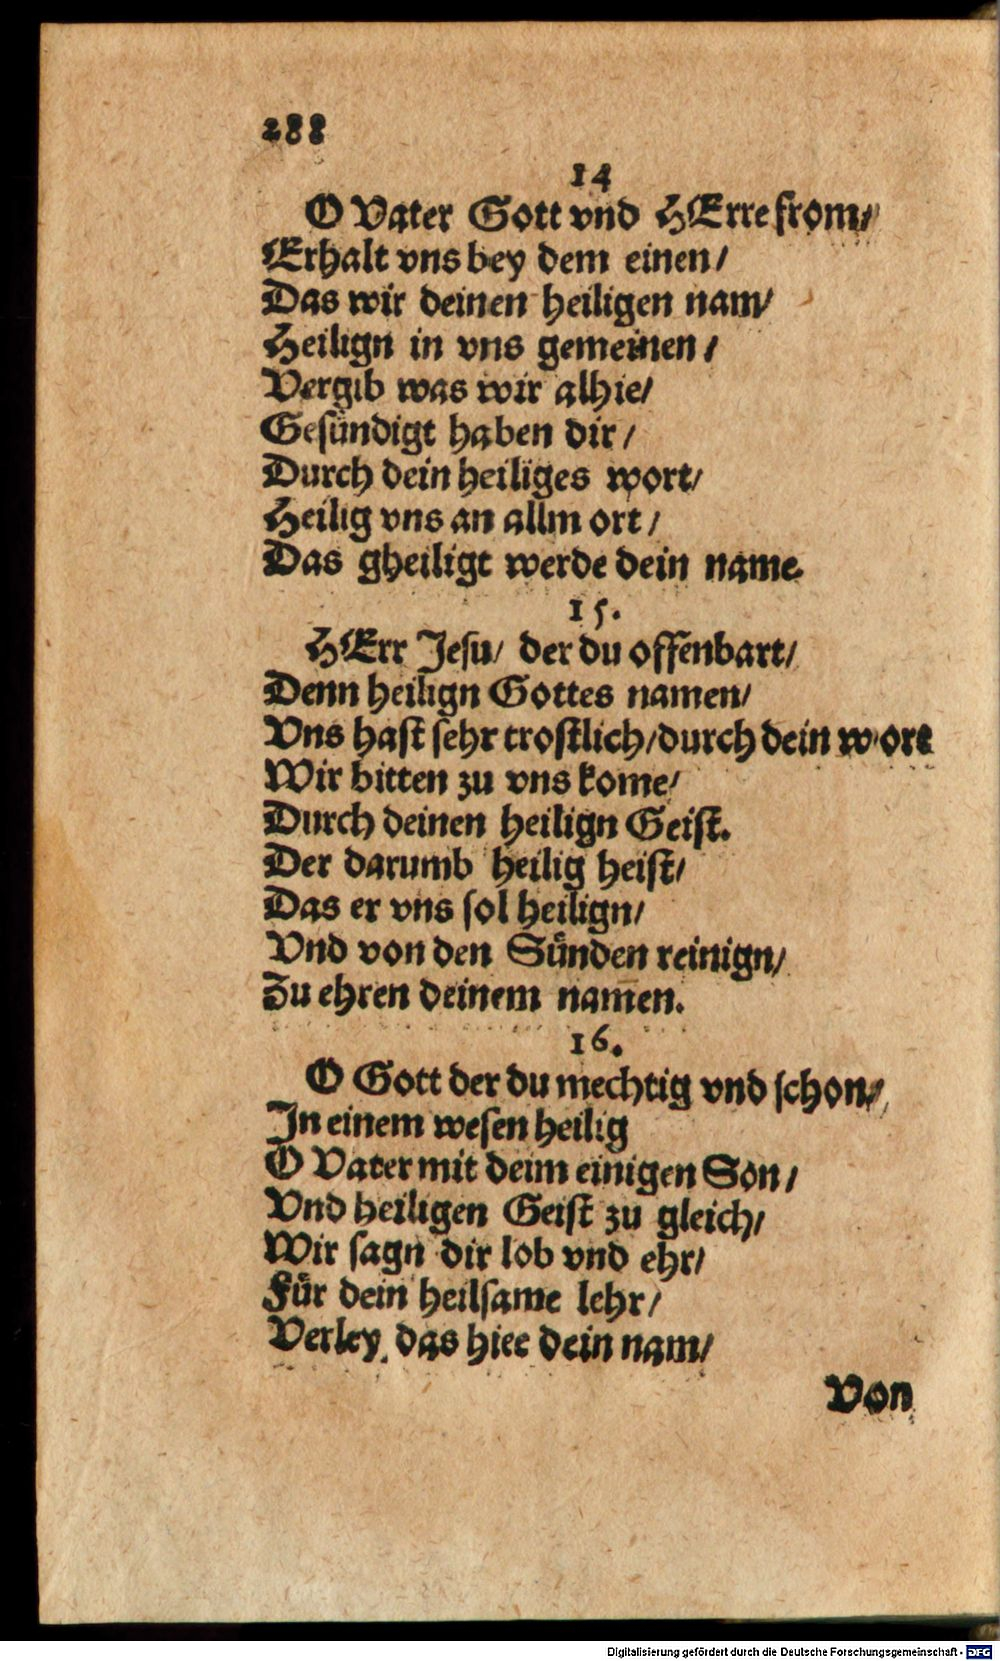 288
14
O Vater Gott vnd HErre from/
Erhalt vns bey dem einen/
Das wir deinen heiligen nam/
Heilign in vns gemeinen/
Vergib was wir alhie/
Gesündigt haben dir/
Durch dein heiliges wort/
Heilig vns an allm ort/
Das gheiligt werde dein name.
15.
HErr Jesu/ der du offenbart/
Denn heilign Gottes namen/
Vns hast sehr trostlich/durch dein wort
Wir bitten zu vns kome/
Durch deinen heilign Geist.
Der darumb heilig heist/
Das er vns sol heilign/
Vnd von den Sünden reinign/
Zu ehren deinem nam̄en.
16.
O Gott der du mechtig vnd schon/
In einem wesen heilig
O Vater mit deim einigen Son/
Vnd heiligen Geist zu gleich/
Wir sagn dir lob vnd ehr/
Für dein heilsame lehr/
Verley das hiee dein nam/
Von
Digitalisierung gefördert durch die Deutsche Forschungsgemeinschaft - DFG